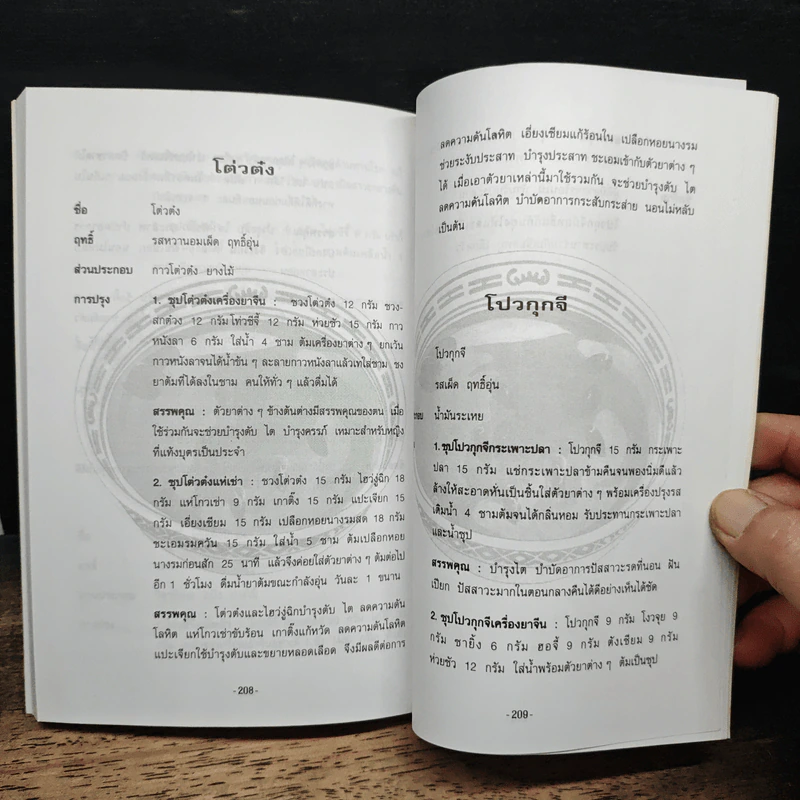 โต่วต๋ง
ชื่อ โต่วต๋ง
ฤทธิ์ รสหวานอมเผ็ด ฤทธิ์อุ่น
ส่วนประกอบ กาวโต่วต๋ง ยางไม้
การปรุง 1. ซุปโต่วต๋งเครื่องยาจีน : ชวงโต่วต๋ง 12 กรัม ชวง-
สกต๋วง 12 กรัม โทวซีจี้ 12 กรัม ห่วยซัว 15 กรัม กาว
หนังลา 6 กรัม ใส่น้ำ 4 ชาม ต้มเครื่องยาต่าง ๆ ยกเว้น
กาวหนังลาจนได้น้ำข้น ๆ ละลายกาวหนังลาแล้วเทใส่ชาม ชง
ยาต้มที่ได้ลงในชาม คนให้ทั่ว ๆ แล้วดื่มได้
สรรพคุณ : ตัวยาต่าง ๆ ข้างต้นต่างมีสรรพคุณของตน เมื่อ
ใช้ร่วมกันจะช่วยบำรุงตับ ไต บำรุงครรภ์ เหมาะสำหรับหญิง
ที่แท้งบุตรเป็นประจำ
2. ซุปโต่วต๋งแห่เช่า : ชวงโต่วต๋ง 15 กรัม ไฮว่งู่ฉิก 18
กรัม แห่โกวเช่า 9 กรัม เกาติ๊ง 15 กรัม แปะเจียก 15
กรัม เอี่ยงเซียม 15 กรัม เปลือกหอยนางรมสด 18 กรัม
ชะเอมรมควัน 15 กรัม ใส่น้ำ 5 ชาม ต้มเปลือกหอย
นางรมก่อนสัก 25 นาที แล้วจึงค่อยใส่ตัวยาต่าง ๆ ต้มต่อไป
อีก 1 ชั่วโมง ดื่มน้ำยาต้มขณะกำลังอุ่น วันละ 1 ขนาน
สรรพคุณ : โต่วต๋งและไฮว่งู่ฉิกบำรุงตับ ไต ลดความดัน
โลหิต แห่โกวเช่าขับร้อน เกาติ๊งแก้หวัด ลดความดันโลหิต
แปะเจียกใช้บำรุงตับและขยายหลอดเลือด จึงมีผลดีต่อการ
-208-
ลดความดันโลหิต เอี่ยงเซียมแก้ร้อนใน เปลือกหอยนางรม
ช่วยระงับประสาท บำรุงประสาท ชะเอมเข้ากับตัวยาต่าง ๆ
ได้ เมื่อเอาตัวยาเหล่านี้มาใช้รวมกัน จะช่วยบำรุงตับ ไต
ลดความดันโลหิต บำบัดอาการกระสับกระส่าย นอนไม่หลับ
เป็นต้น
โปวกุกจี
โปวกุกจี
รสเผ็ด ฤทธิ์อุ่น
อบ น้ำมันระเหย
1. ซุปโปวกุกจีกระเพาะปลา : โปวกุกจี 15 กรัม กระเพาะ
ปลา 15 กรัม แช่กระเพาะปลาข้ามคืนจนพองนิ่มดีแล้ว
ล้างให้สะอาดหั่นเป็นชิ้นใส่ตัวยาต่าง ๆ พร้อมเครื่องปรุงรส
เติมน้ำ 4 ชามต้มจนได้กลิ่นหอม รับประทานกระเพาะปลา
และน้ำซุป
สรรพคุณ : บำรุงไต บำบัดอาการปัสสาวะรดที่นอน ฝัน
เปียก ปัสสาวะมากในตอนกลางคืนได้ดีอย่างเห็นได้ชัด
2. ซุปโปวกุกจีเครื่องยาจีน : โปวกุกจี 9 กรัม โงวจุย 9
กรัม ชายิ้ง 6 กรัม ฮอจี้ 9 กรัม ตังเซียม 9 กรัม
ห่วยซัว 12 กรัม ใส่น้ำพร้อมตัวยาต่าง ๆ ต้มเป็นซุป
-209-